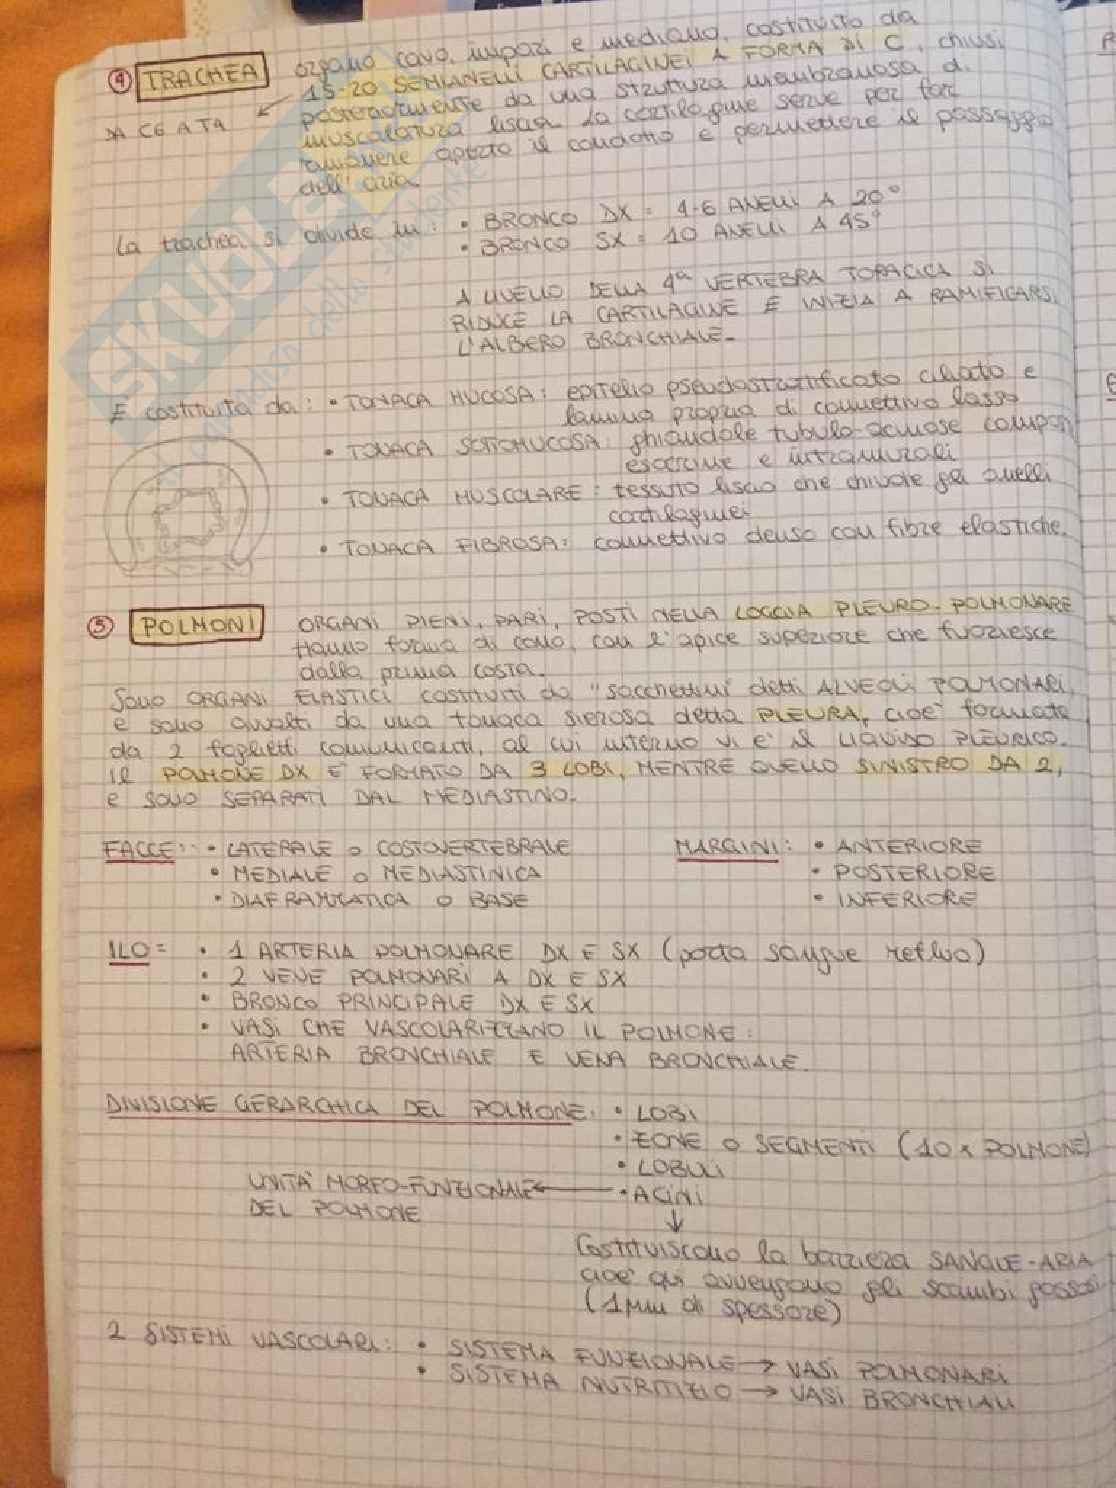 ④ TRACHEA organo cavo, impari e mediano, costituito da
15-20 SEMIANELLI CARTILAGINEI A FORMA DI C, chiusi
DA C6 A T4 posteriormente da una struttura membranosa di
muscolatura liscia. La cartilagine serve per far
rimanere aperto il condotto e permettere il passaggio
dell'aria.
La trachea si divide in: • BRONCO DX = 4-6 ANELLI A 20°
• BRONCO SX = 10 ANELLI A 45°
A LIVELLO DELLA 4ª VERTEBRA TORACICA SI
RIDUCE LA CARTILAGINE E INIZIA A RAMIFICARSI
L'ALBERO BRONCHIALE.
È costituita da: • TONACA MUCOSA: epitelio pseudostratificato ciliato e
lamina propria di connettivo lasso
• TONACA SOTTOMUCOSA: ghiandole tubulo-acinose
esocrine e intramurali
• TONACA MUSCOLARE: tessuto liscio che chiude gli anelli
cartilaginei
• TONACA FIBROSA: connettivo denso con fibre elastiche.
⑤ POLMONI ORGANI PIENI, PARI, POSTI NELLA LOGGIA PLEURO-POLMONARE
Hanno forma di cono, con l'apice superiore che fuoriesce
dalla prima costa.
Sono ORGANI ELASTICI costituiti da "sacchettini" detti ALVEOLI POLMONARI,
e sono avvolti da una tonaca sierosa detta PLEURA, cioè formata
da 2 foglietti comunicanti, al cui interno vi è il LIQUIDO PLEURICO.
Il POLMONE DX È FORMATO DA 3 LOBI, MENTRE QUELLO SINISTRO DA 2,
e SONO SEPARATI DAL MEDIASTINO.
FACCE: • LATERALE O COSTOVERTEBRALE MARGINI: • ANTERIORE
• MEDIALE O MEDIASTINICA • POSTERIORE
• DIAFRAMMATICA O BASE • INFERIORE
ILO = • 1 ARTERIA POLMONARE DX E SX (porta sangue refluo)
• 2 VENE POLMONARI A DX E SX
• BRONCO PRINCIPALE DX E SX
• VASI CHE VASCOLARIZZANO IL POLMONE:
ARTERIA BRONCHIALE E VENA BRONCHIALE.
DIVISIONE GERARCHICA DEL POLMONE: • LOBI
• ZONE O SEGMENTI (10 x POLMONE)
• LOBULI
UNITÀ MORFO-FUNZIONALE ← • ACINI
DEL POLMONE ↓
Costituiscono la barriera SANGUE-ARIA
cioè qui avvengono gli scambi gassosi
(1μm di spessore)
2 SISTEMI VASCOLARI: • SISTEMA FUNZIONALE → VASI POLMONARI
• SISTEMA NUTRITIZIO → VASI BRONCHIALI